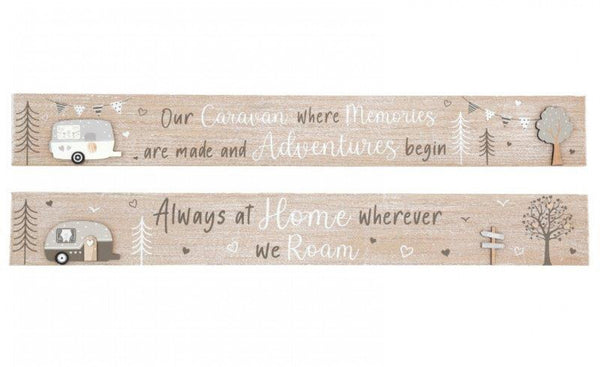 Our Caravan where Memories
are made and Adventures begin
Always at Home wherever
we Roam